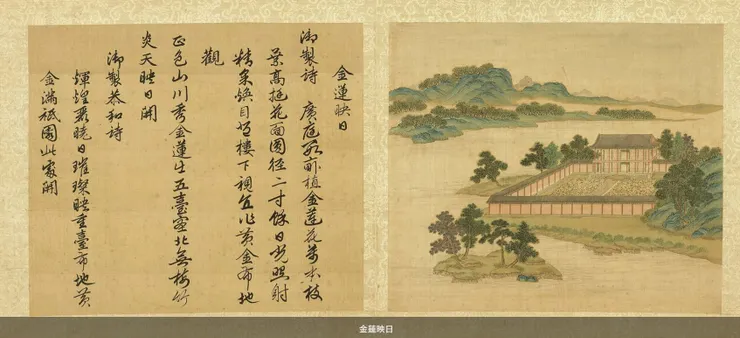 金蓮映日
御製詩 廣庭數畝植金蓮花萬本枝
葉高挺花面圓徑二寸餘日光照射
精采煥目登樓下視直作黃金布地
觀
正色山川秀金蓮出五臺塞北無梅竹
炎天映日開
御製恭和詩
煇煌曉日璀璨映重臺布地黃
金滿祇園此處開
金蓮映日